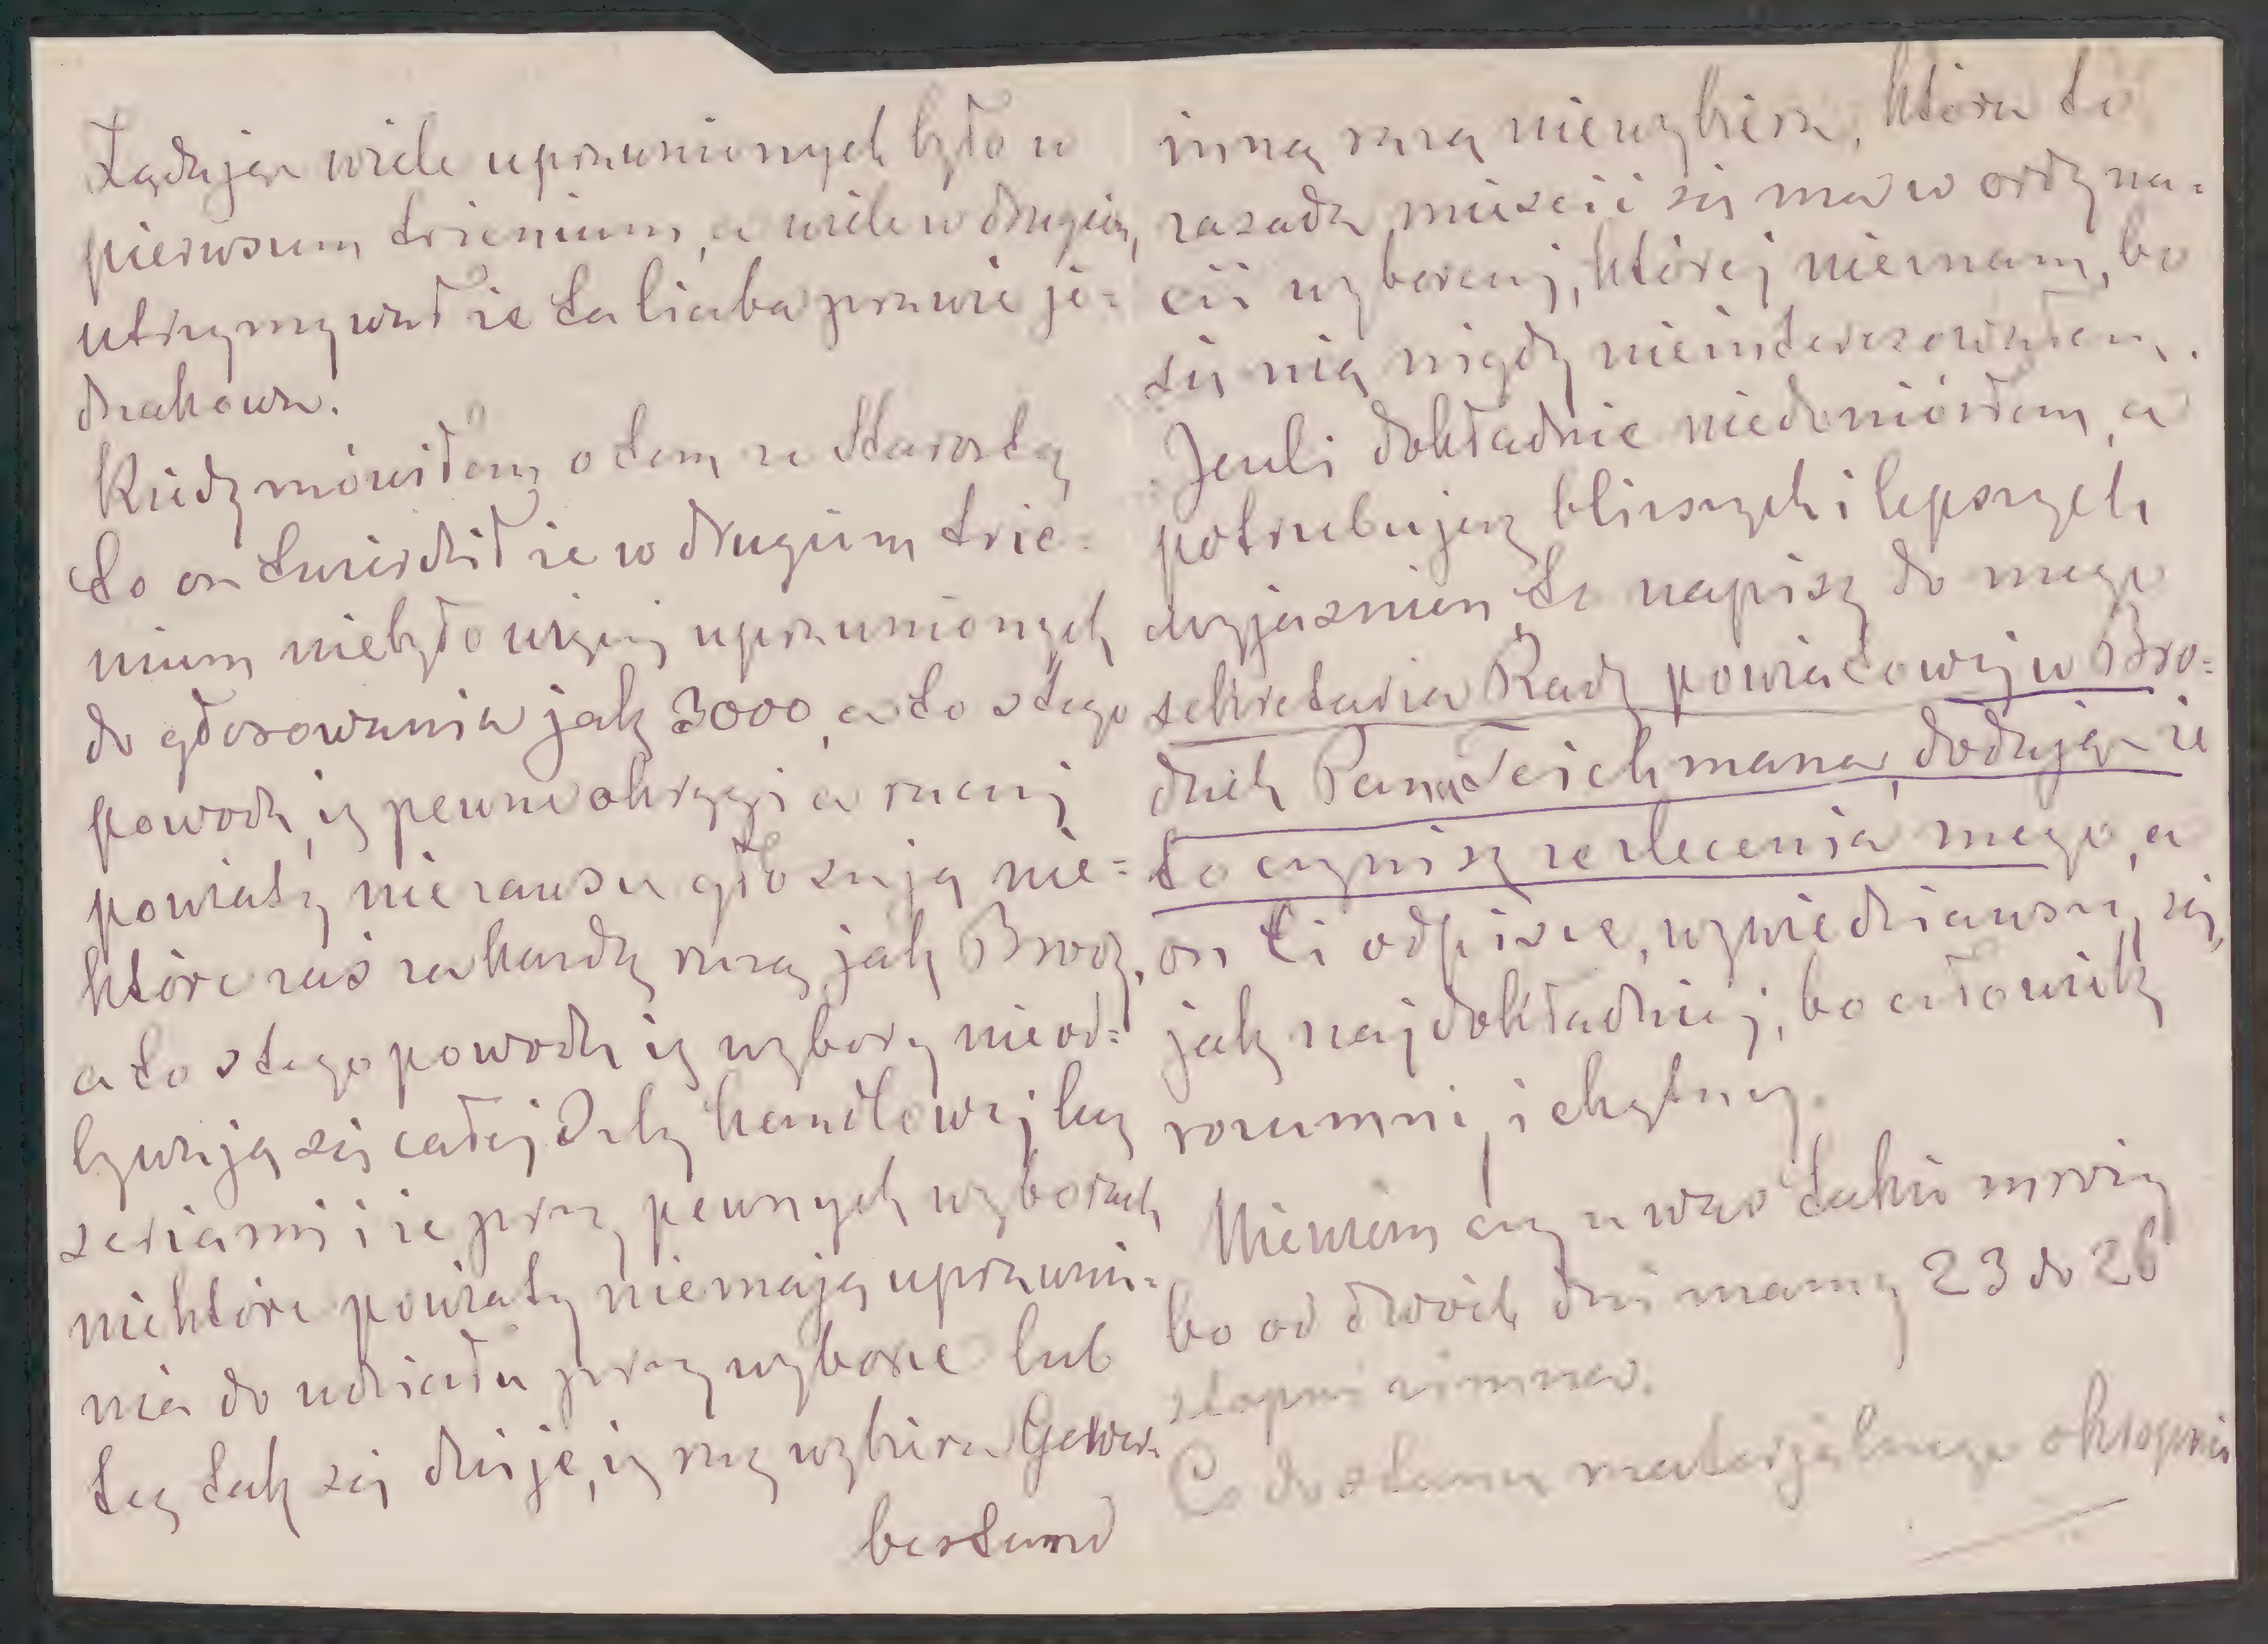 Żądając wiele uprawnionych było w
pierwszem trienium, a wiele w drugim,
utrzymywał że ta liczba prawie je=
dnakowa.
Kiedy mówiłem o tem ze Starostą
to on twierdził że w drugim trie=
nium niebyło więcej uprawnionych
do głosowania jak 3000, a to z tego
powodu, iż pewne okręgi a raczej
powiaty nie zawsze głosują nie=
które zaś za każdą razą jak Brody,
a to z tego powodu iż wybory nie od=
bywają się całej Izby handlowej lecz
seriami i że przy pewnych wyborach
niektóre powiaty niemają uprawnie=
nia do udziału przy wyborze lub
też tak się dzieje, iż raz wybiera Gewer=
bestand
inną razą niewybiera, która to
zasada mieścić się ma w ordyna=
cii wyborczej, której niemam, bo
się nią nigdy nieinteresowałem.
Jeżeli dokładnie niedoniósłem, a
potrzebujesz bliższych i lepszych
wyjaśnień to napisz do mego
sekretarza Rady powiatowej w Bro=
dach Pana Teichmana, dodając że
to czynisz ze zlecenia mego, a
on Ci odpisze, wywiedziawszy się,
jak najdokładniej, bo człowiek
rozumny i chętny.
Niewiem czy u was takie mrozy
bo od dwóch dni mamy 23 do 26
stopni zimna.
Co do stanu materjalnego okropnie